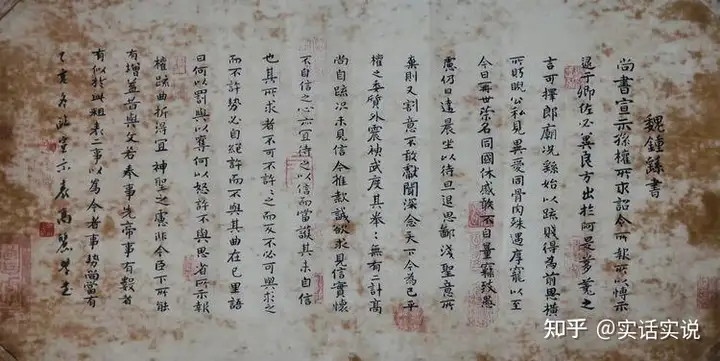 魏鍾繇書
尚書宣示孫權所求詔令所報所以博示
逮于卿佐必冀良方出於阿是芻蕘之
言可擇郎廟況繇始以疏賤得為前恩橫
所盱睨公私見異愛同骨肉殊遇厚寵以至
今日再世榮名同國休慼敢不自量竊致愚
慮仍日達晨坐以待旦退思鄙淺聖意所
棄則又割意不敢獻聞深念天下今為已平
權之委質外震神武度其拳〻無有二計高
尚自疏況未見信今推款誠欲求見信實懷
不自信之心亦宜待之以信而當護其未自信
也其所求者不可不許〻之而反不必可與求之
而不許勢必自絕許而不與其曲在己里語
曰何以罰與以奪何以怒許不與思省所示報
權疏曲折得宜神聖之慮非今臣下所能
有增益昔與文若奉事先帝事有數者
有似於此粗表二事以為今者事勢尚當有
乙亥
知乎 @实话实说